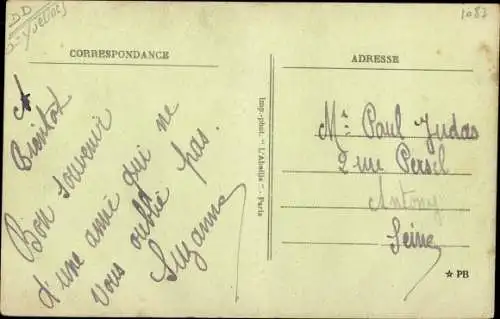 1087
CORRESPONDANCE
A
Bientot
Bon souvenir
d'une amie qui ne
vous oublie pas.
Suzanne
Imp.-phot. "L'Abeille" - Paris
ADRESSE
Mr Paul Judas
2 rue Persil
Antony
Seine
☆ PB